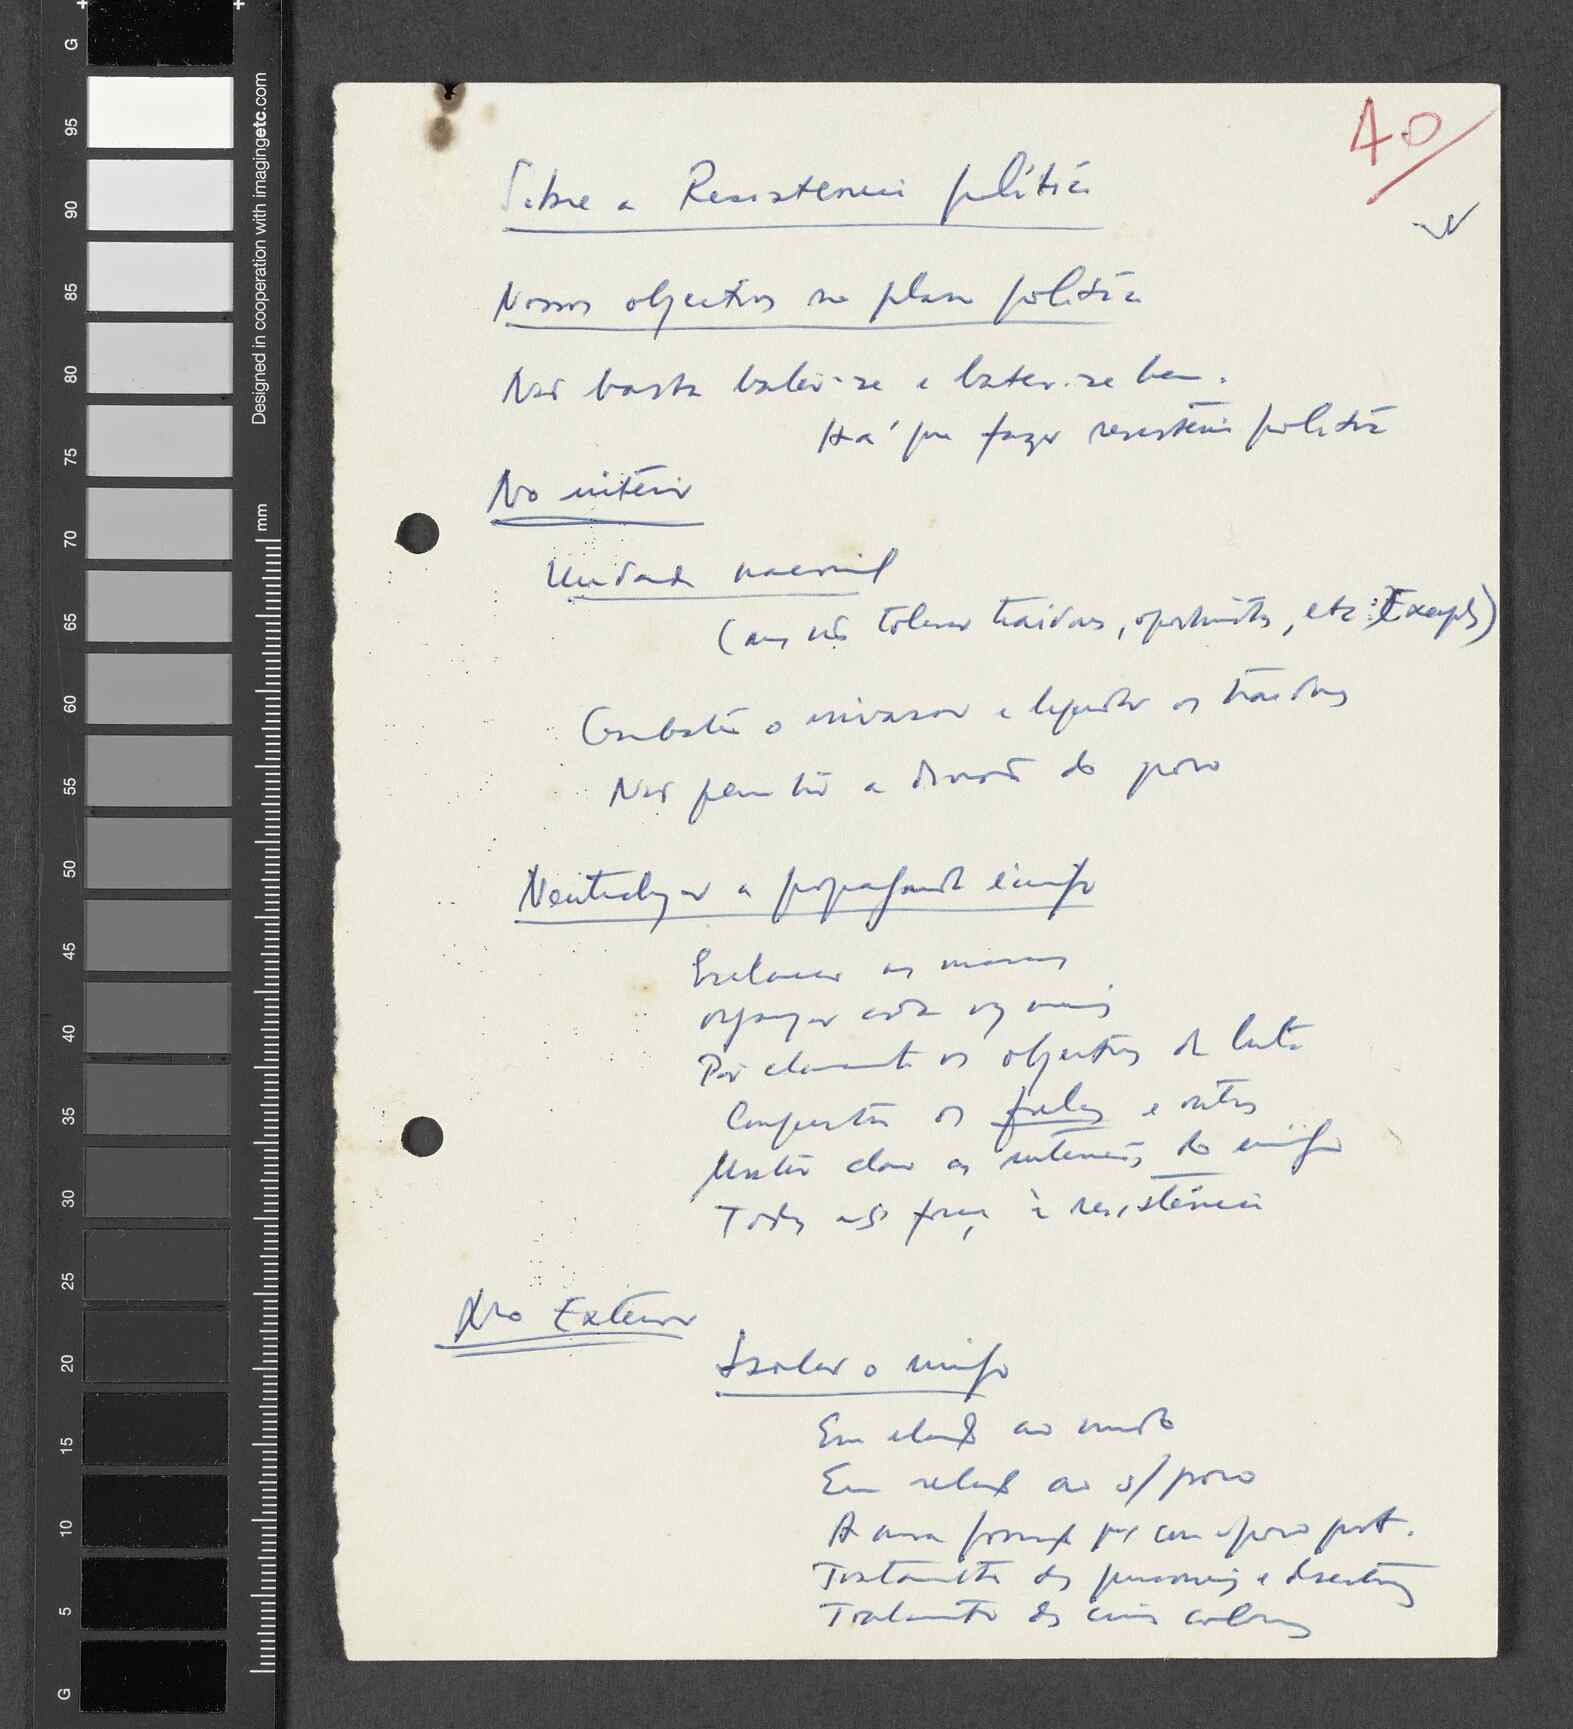 40
Sobre a Resistencia política
Nossos objectivos no plano político
Não basta bater-se e bater-se bem.
Há que fazer resistência política
No interior
Unidade nacional
(mas não tolerar traidores, oportunistas, etc. Exemplos)
Combater o invasor e liquidar os traidores
Não permitir a divisão do povo
Neutralizar a propaganda inimigo
Esclarecer as massas
organizar cada vez mais
Pôr claramente os objectivos da luta
os fulas e outros
Mostrar claro as intenções do inimigo
Todos força à resistência
No Exterior
Isolar o inimigo
Em relação ao mundo
Em relação ao s/ povo
A nossa posição com o povo port.
Tratamento dos prisioneiros e desertores
Tratamento dos civis colonos
G
95
90
85
80
75
70
65
60
55
50
45
40
35
30
25
20
15
10
5
G
Designed in cooperation with imagingetc.com
mm